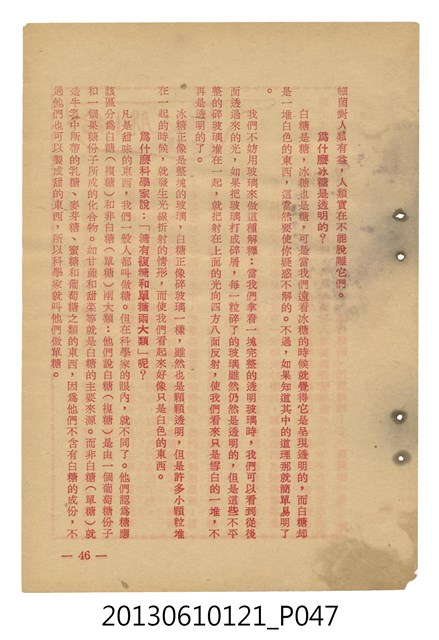 細菌對人還有益，人類實在不能脫離它們。
為什麼冰糖是透明的？
白糖是糖，冰糖也是糖，可是當我們遠看冰糖的時候就覺得它是呈現透明的，而白糖却
是一堆白色的東西，這當然要使你疑惑不解的。不過，如果知道其中的道理那就簡單易明了
。
我們不妨用玻璃來做這種解釋：當我們拿着一塊完整的透明玻璃時，我們可以看到從後
面透過來的光，如果把玻璃打成碎屑，每一粒碎了的玻璃雖然仍然是透明的，但是這些不平
整的碎玻璃堆在一起，就把射在上面的光向四方八面反射，使我們看來只是雪白的一堆，不
再是透明的了。
冰糖正像是整塊的玻璃，白糖正像碎玻璃一樣，雖然也是顆顆透明，但是許多小顆粒堆
在一起的時候，就發生光線折射的情形，而使我們看起來好像只是白色的東西。
為什麼科學家說：「擁有複糖和單糖兩大類」呢？
凡是甜味的東西，我們一般人都叫做糖。但在科學家的眼內，就不同了。他們認為糖應
該區分為白糖（複糖）和非白糖（單糖）兩大類：他們說白糖（複糖）是由一個葡萄糖份子
和一個果糖份子所成的化合物。如甘蔗和甜菜等就是白糖的主要來源。而非白糖（單糖）就
是牛乳中所帶的乳糖、麥芽糖、蜜糖和葡萄糖之類的東西，因為他們不含有白糖的成份，不
過他們也可以製成甜的東西，所以科學家就叫他們做單糖。
— 46 —
20130610121_P047